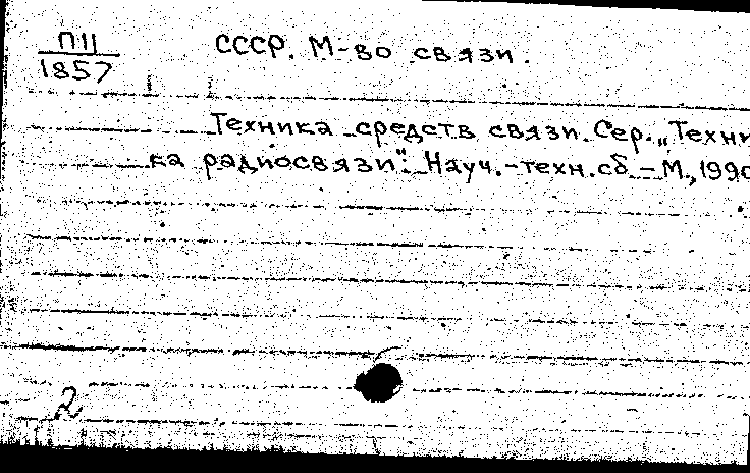 П11
1857
СССР. М-во связи.
Техника средств связи. Сер. „Техни
ка радиосвязи": Науч.-техн. сб. - М., 1990
2